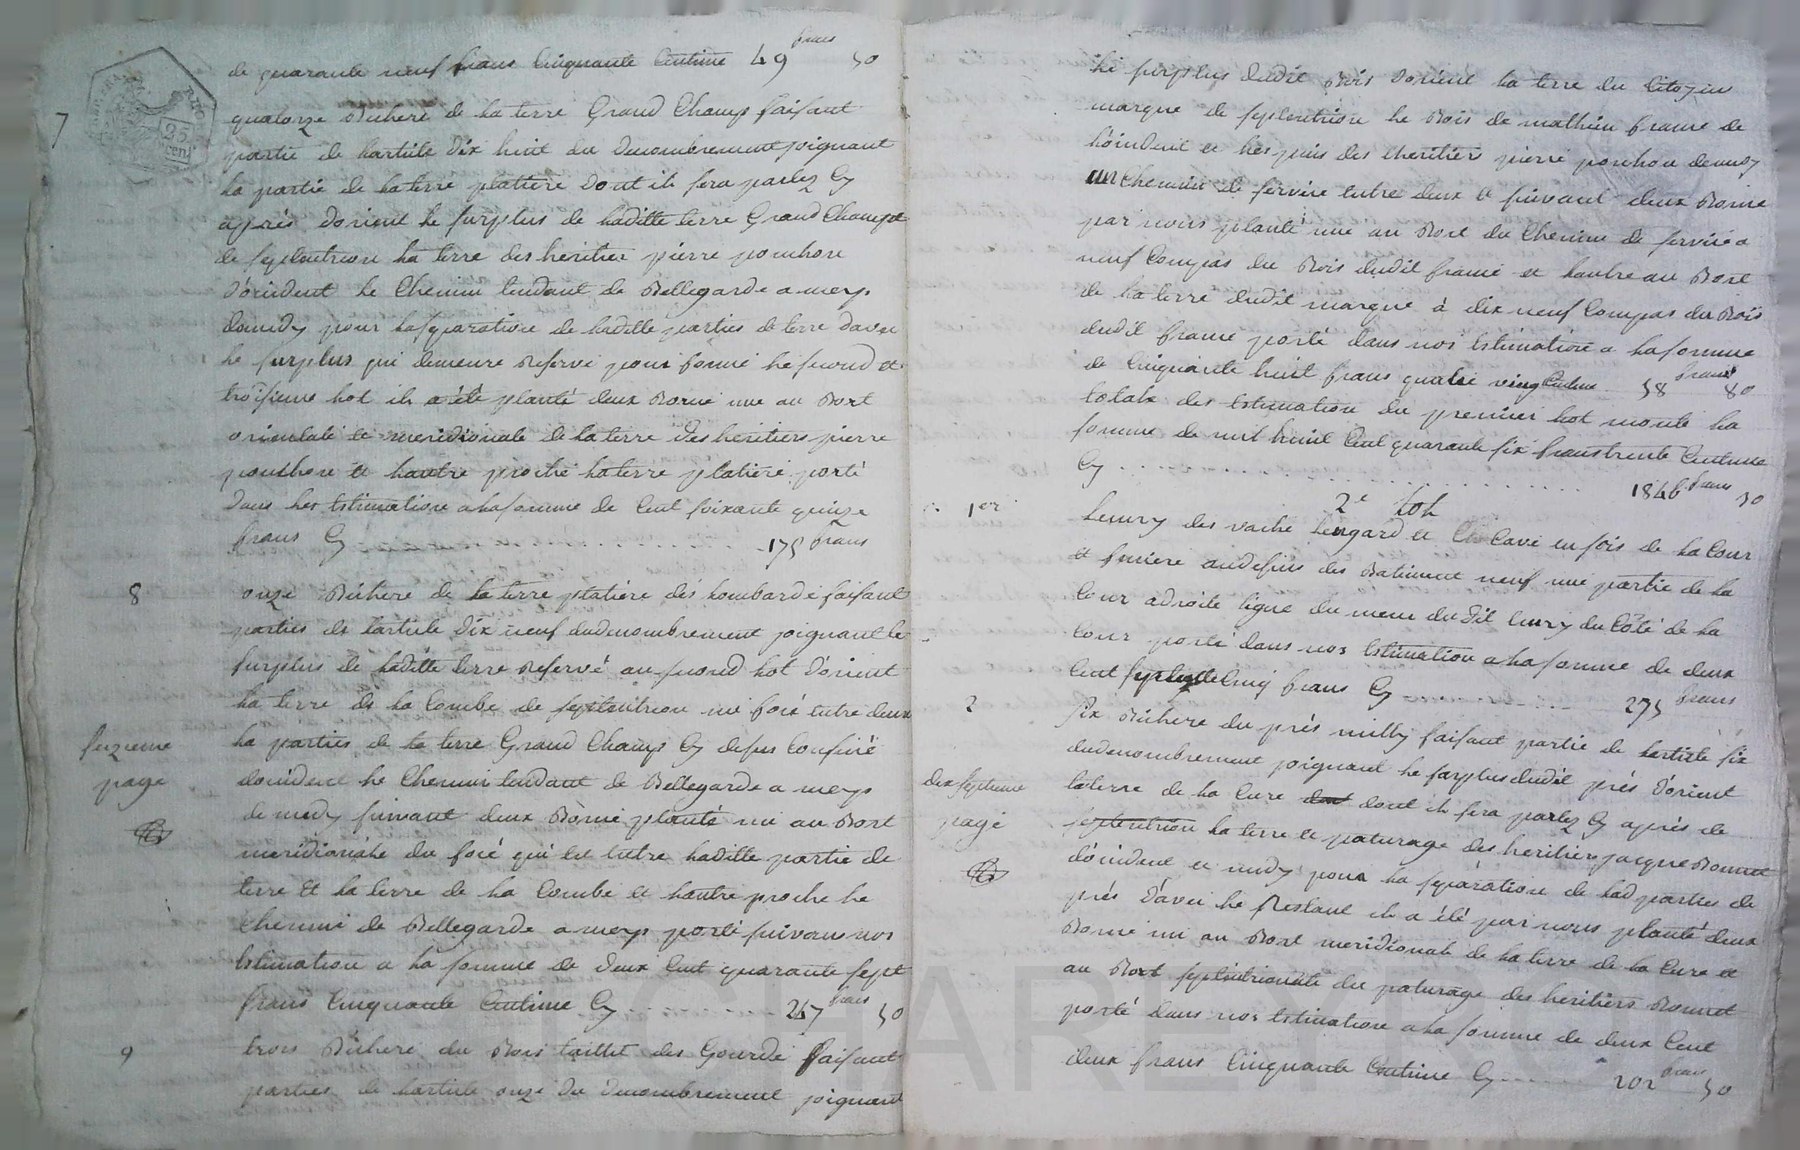 de quarante neuf frans Cinquante Centime 49 frans 50
7
25 cent
quatorze Bichere de la terre Grand Champ faisant
partie de lartiele dix huit du denombrement joignant
la partie de la terre platiere dont il sera parlez Cy
après dorient le surplus de laditte terre Grand Champ et
de septentrion la terre des heritier pierre pouchon
d'occident le Chemin tendant de Bellegarde a meys
le surplus qui demeure Reservé pour formé le second et
troisieme lot il a été planté deux Borne une au Bort
orientale et meridionale de la terre des heritiers pierre
pouchon et lautre proche la terre platiere porté
dans les Estimation a la somme de Cent soixante quinze
frans Cy 175 frans
8
onze Bichere de la terre platiere des lombarde faisant
parties de lartiele dix neuf dudenombrement joignant le
surplus de laditte terre Reservé au second lot d'orient
la terre de la Combe de septentrion un fośé entre deux
la parties de la terre Grand Champ Cy desus Confiné
seizieme
page
docident le Chemin tendant de Bellegarde a meys
de midy suivant deux Borne planté une au Bort
meridionale du fosé qui est entre laditte partie de
terre et la terre de la Combe et lautre proche le
Chemin de Bellegarde a meys porté suivant nos
Estimation a la somme de deux Cent quarante sept
frans Cinquante Centime Cy 247 frans 50
9
trois Bichere du Bois taillit des Gourde faisant
parties de lartiele onze du denombrement joignant
le surplus dudit Bois dorient la terre du Citoyen
marque de septentrion le Bois de mathieu franc de
un Chemin de service entre deux et suivant deux Borne
par nous planté une au Bort du Chemin de service a
neuf Compas du Bois dudit franc et lautre au Bort
de la terre dudit marque à dix neuf Compas du Bois
dudit franc porté dans nos Estimation a la somme
de Cinquante huit frans quatre ving Centime 58 frans 80
totale des Estimation du premier lot monte la
somme de mil huit Cent quarante six frans trente Centime
Cy 1846 frans 30
2e lot
1er
Lecury des vache hengard et Cave en sois de la Cour
et feniere audesus des Batiment neuf une partie de la
Cour adroite ligne du meme dudit Ecury du Côté de la
Cour porté dans nos Estimation a la somme de deux
Cent septente Cinq frans Cy 275 frans
2
six Bichere du prés milly faisant partie de lartiele six
dudenombrement joignant le surplus dudit prés d'orient
dix septieme
page
la terre de la Cure dont il sera parlez Cy après de
septentrion la terre et paturage des heritiers jacque Bonnet
d'occident et midy pour la separation de lad parties de
prés d'avec le Restant il a été par nous planté deux
Borne une au Bort meridionale de la terre de la Cure et
au Bort septentrionale du paturage des heritiers Bonnet
porté dans nos Estimation a la somme de deux Cent
deux frans Cinquante Centime Cy 202 frans 50
CHARLYK